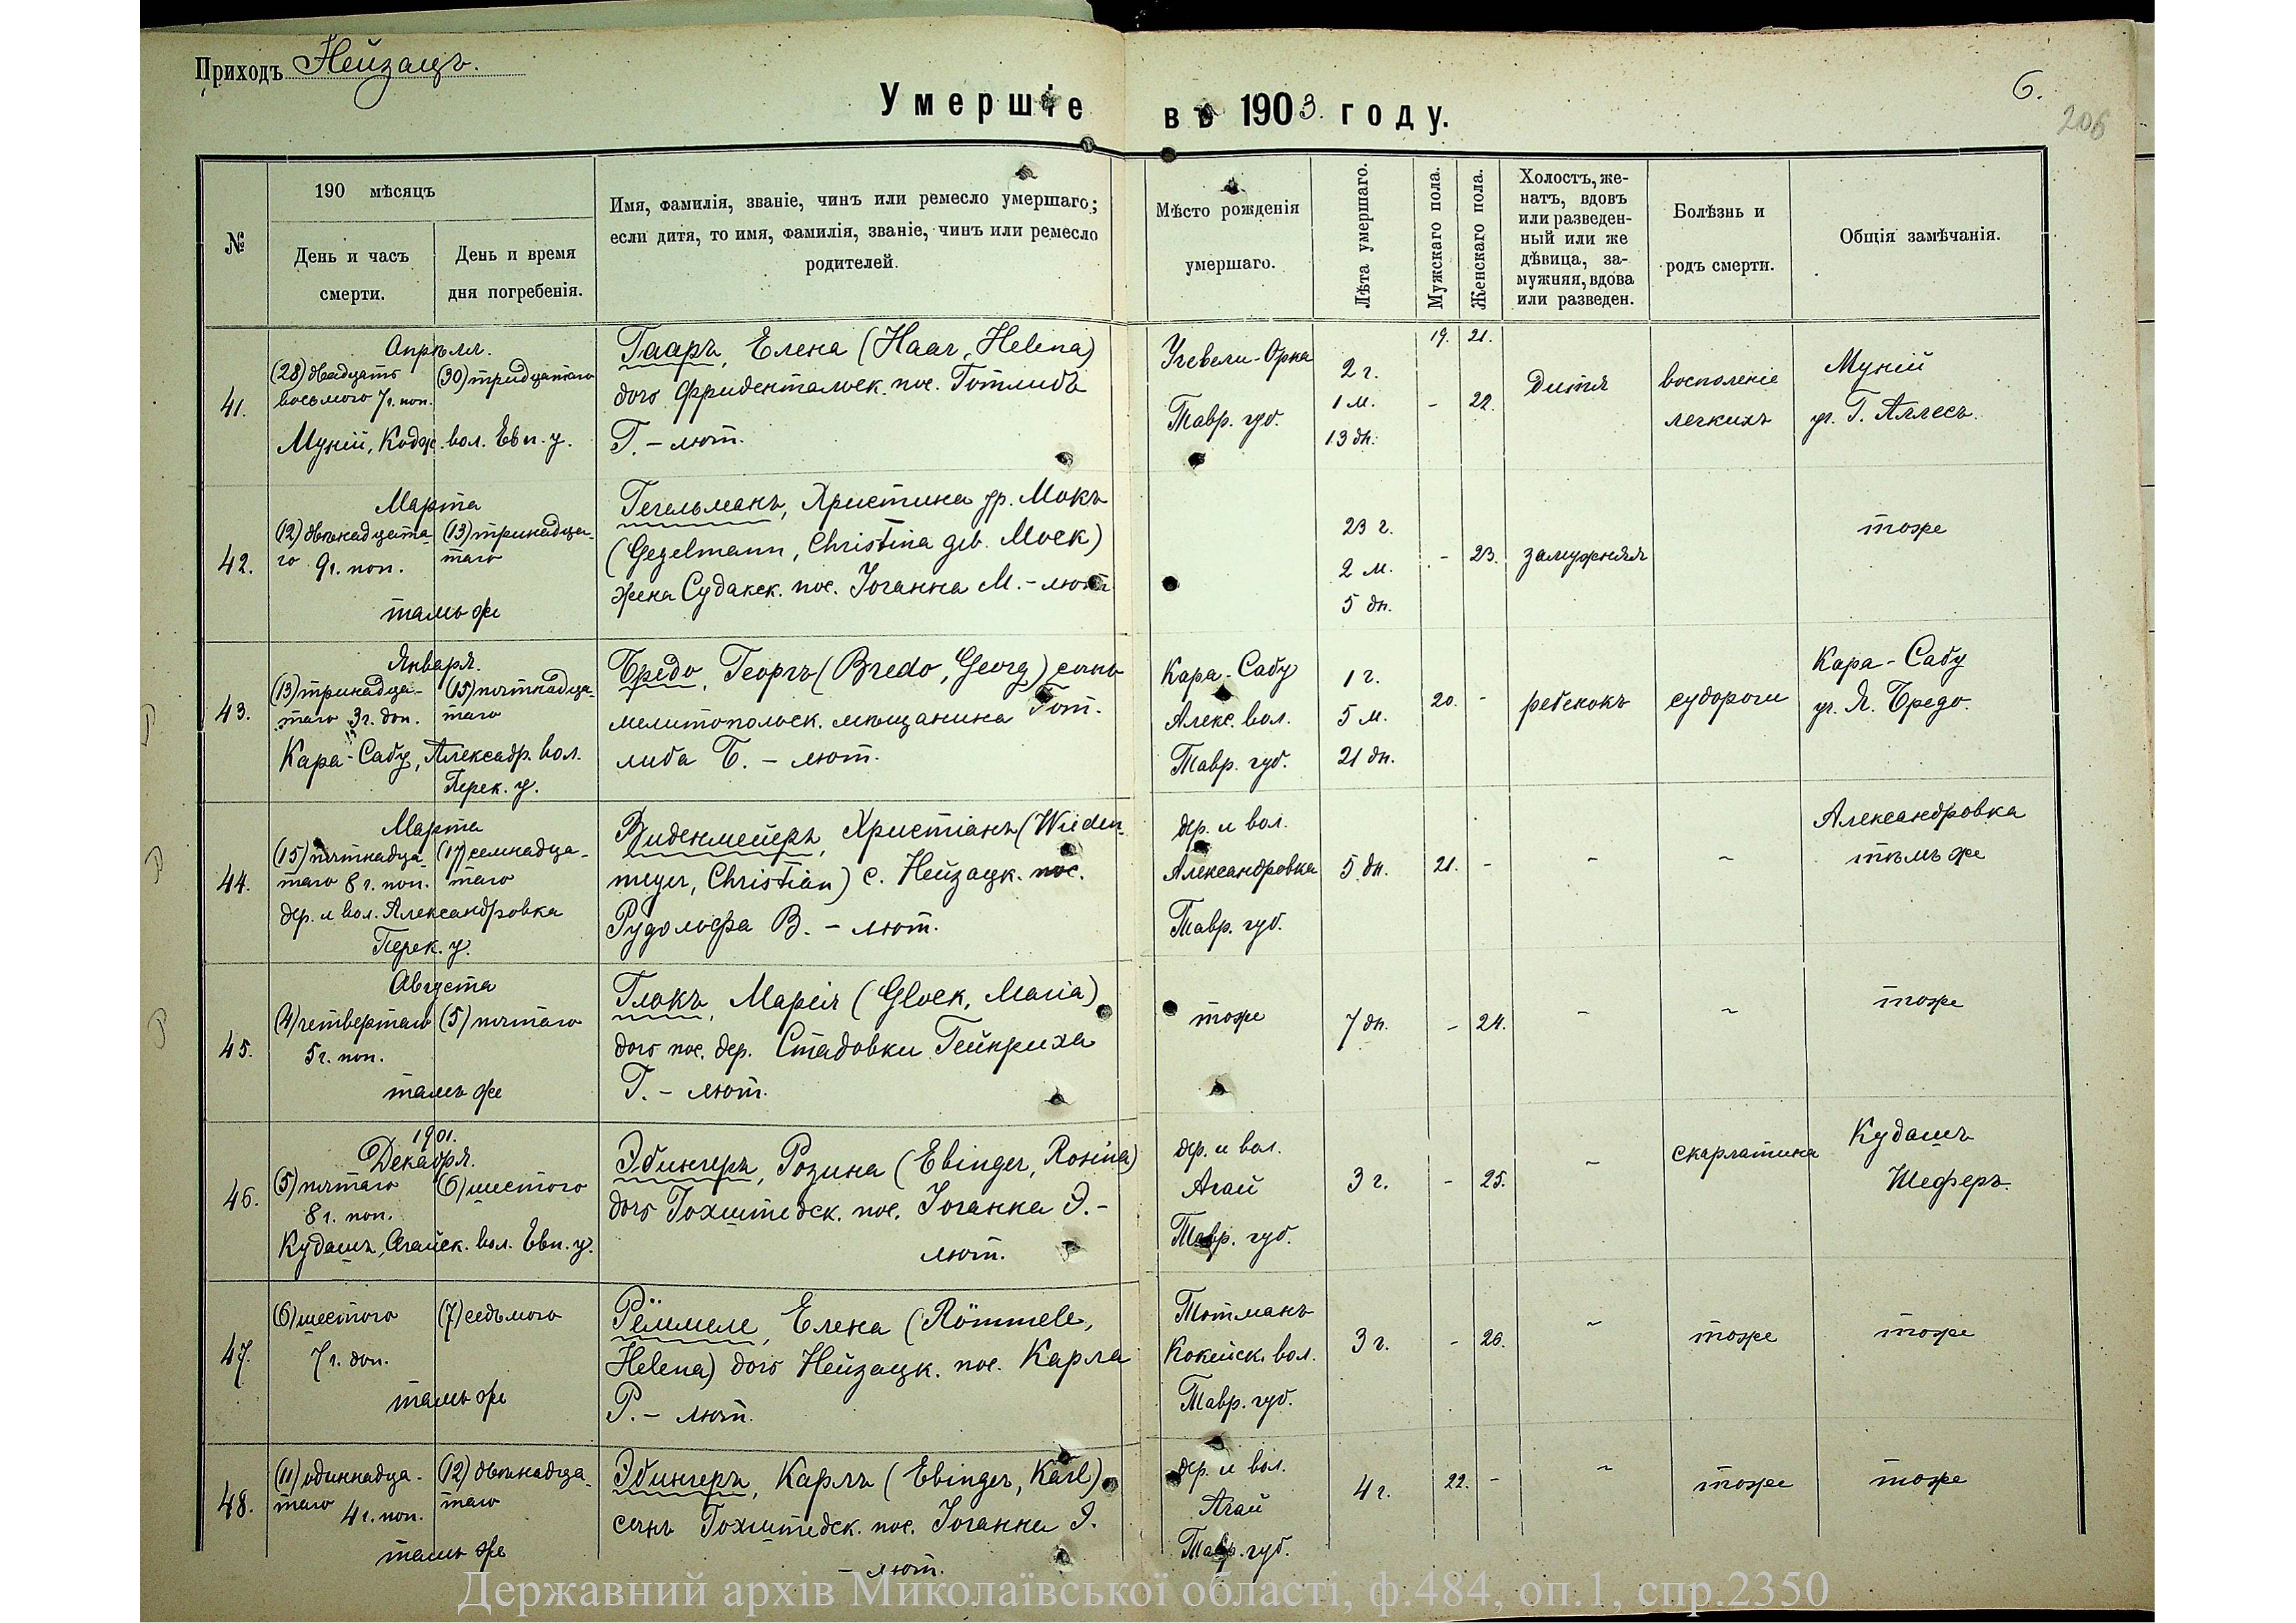 Приходъ Нейзацъ.
6.
206
Умершіе въ 1903. году.
№
190 мѣсяцъ
День и часъ смерти.
День и время дня погребенія.
Имя, фамилія, званіе, чинъ или ремесло умершаго;
если дитя, то имя, фамилія, званіе, чинъ или ремесло
родителей.
Мѣсто рожденія
умершаго.
Лѣта умершаго.
Мужскаго пола.
Женскаго пола.
Холостъ, же-
натъ, вдовъ
или разведен-
ный или же
дѣвица, за-
мужняя, вдова
или разведен.
Болѣзнь и
родъ смерти.
Общія замѣчанія.
19. 21.
41.
Апрѣля.
(28) двадцать
восьмого 7 ч. поп.
(30) тридцатаго
Муній, Кодж. вол. Евп. у.
Гааръ, Елена (Haar, Helena)
дочь Фридентальск. пос. Готлиба
Г. – лют.
Учевели-Орка
Тавр. губ.
2 г.
1 м.
13 дн.
- 22.
Дитя
восполеніе
легкихъ
Муній
уч. Г. Аллесъ.
42.
Марта
(12) двѣнадцата-
го 9 ч. поп.
(13) тринадца-
таго
тамъ же
Гегельманъ, Христина ур. Мокъ
(Gegelmann, Christina geb. Mock)
жена Судакск. пос. Іоганна М. – лют.
23 г.
2 м.
5 дн.
- 23.
замужняя
тоже
43.
Января.
(13) тринадца-
таго 3 ч. доп.
(15) пятнадца-
таго
Кара-Сабу, Александр. вол.
Перек. у.
Бредо, Георгъ (Bredo, Georg) сынъ
мелитопольск. мѣщанина Гот-
либа Б. – лют.
Кара-Сабу
Алекс. вол.
Тавр. губ.
1 г.
5 м.
21 дн.
20. -
ребенокъ
судороги
Кара-Сабу
уч. Я. Бредо.
44.
Марта
(15) пятнадца-
таго 8 ч. поп.
(17) семнадца-
таго
дер. и вол. Александровка
Перек. у.
Виденмейеръ, Христіанъ (Wieden-
meyer, Christian) с. Нейзацк. пос.
Рудольфа В. – лют.
дер. и вол.
Александровка
Тавр. губ.
5 дн.
21. -
~
~
Александровка
тѣмъ же
45.
Августа
(4) четвертаго
5 ч. поп.
(5) пятаго
тамъ же
Глокъ, Марія (Glock, Maria)
дочь пос. дер. Стадовки Гейнриха
Г. – лют.
тоже
7 дн.
- 24.
~
~
тоже
46.
1901.
Декабря.
(5) пятаго
8 ч. поп.
(6) шестого
Кудашъ, Агайск. вол. Евп. у.
Эбингеръ, Розина (Ebinger, Rosina)
дочь Гохштедск. пос. Іоганна Э. –
лют.
дер. и вол.
Агай
Тавр. губ.
3 г.
- 25.
~
скарлатина
Кудашъ
Шеферъ.
47.
(6) шестого
7 ч. доп.
(7) седьмого
тамъ же
Рёммеле, Елена (Römmele,
Helena) дочь Нейзацк. пос. Карла
Р. – лют.
Тотманъ
Кокейск. вол.
Тавр. губ.
3 г.
- 26.
~
тоже
тоже
48.
(11) одиннадца-
таго 4 ч. поп.
(12) двѣнадца-
таго
тамъ же
Эбингеръ, Карлъ (Ebinger, Karl)
сынъ Гохштедск. пос. Іоганна Э.
– лют.
дер. и вол.
Агай
Тавр. губ.
4 г.
22. -
~
тоже
тоже
Державний архів Миколаївської області, ф.484, оп.1, спр.2350